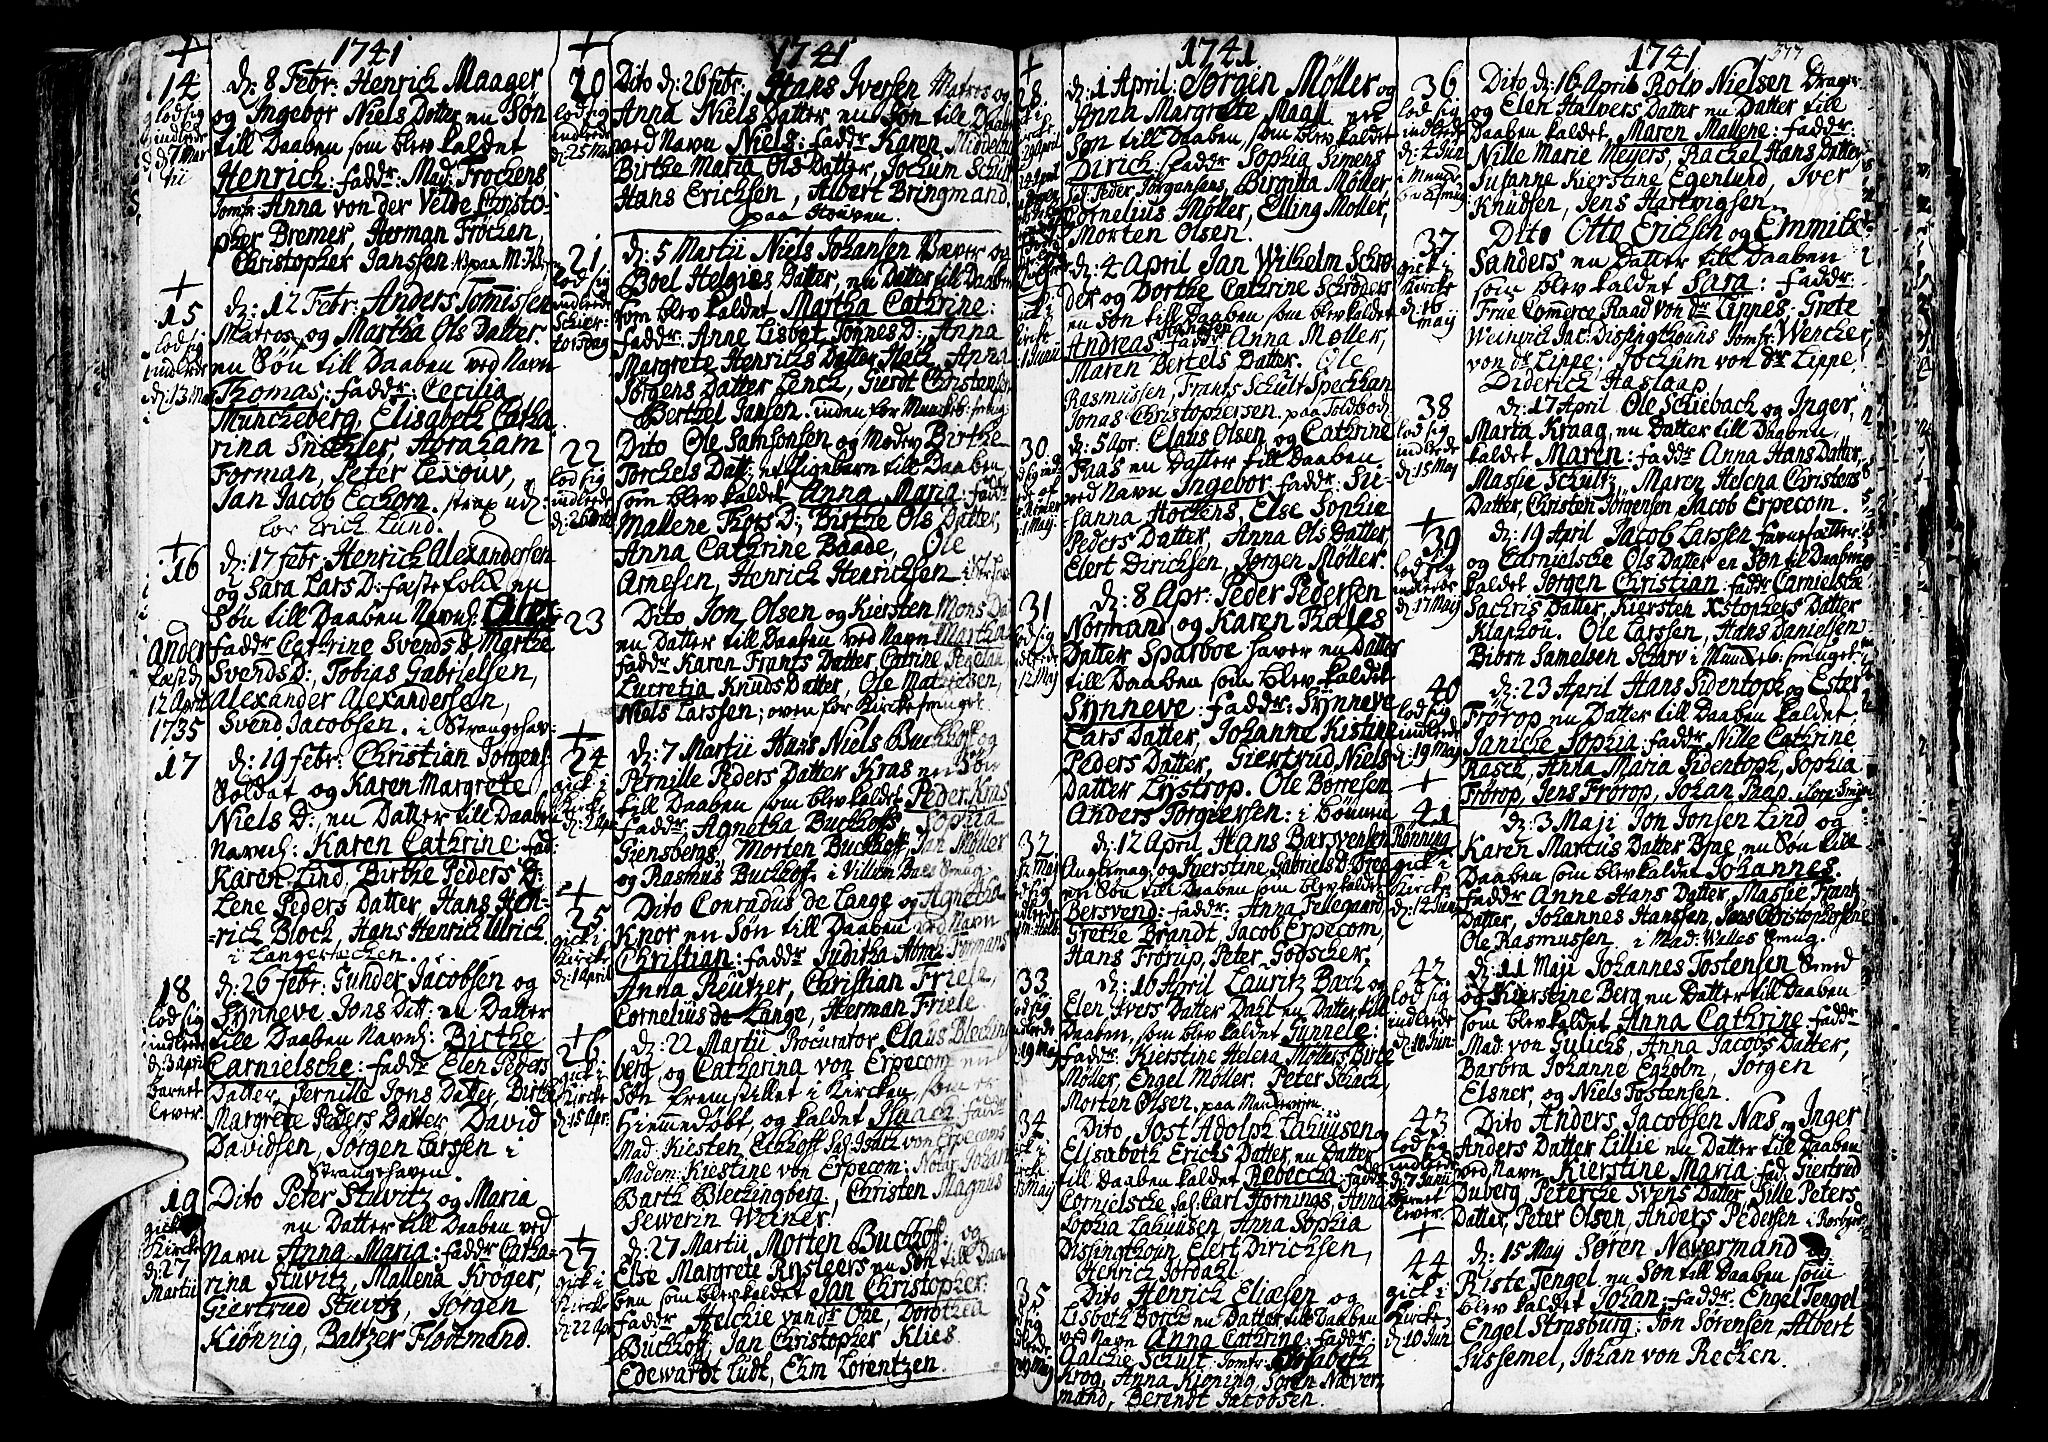 1741
14
lod sig
indlede
d: 7 Mar
tii
d: 8 Febr: Henrich Maager,
og Ingebor Niels Datter en Søn
till Daaben som blev kaldet
Henrich: faddr: Mad: Frochens
Jomfr: Anna von der Velde Christo-
pher Bremer, Herman Frochen,
Christopher Janssen:
15
lod sig
indlede
d: 13 Mar
d: 12 Febr: Anders Tomissen
Matros, og Martha Ols Datter
en Søn till Daaben ved Navn
Thomas: faddr: Cecilia
Munckeberg, Elisabeth Catha
rina Snichler, Abraham
Forman, Peter Lexouv,
Jan Jacob Eckhorn. strax ud
for Erich Lund.
16
Ander
12 April
1735
d: 17 febr: Henrich Alexandersen
og Sara Lars D: fæstefolk en
Søn till Daaben Navnl:
faddr Cathrine Svends D Marthe
Svends D: Tobias Gabrielsen,
Alexander Alexandersen,
Svend Jacobsen. i Strangehav-
17
d: 19 febr: Christian Jørgens
Soldat og Karen Margrete
Niels D:, en Datter till Daaben
Navnl: Karen Cathrine: fad:
Karen Lind, Birthe Peders D:
Lene Peders Datter, Hans Hen-
-rich Block, Hans Henrich Ulrich.
i Langertechen.
18
lod sig
indlede
d: 3 april
barnet
lever.
d: 26 febr: Gunder Jacobsen og
Synneve Jons Datt: en Datter
till Daaben Navnl: Birthe
Carnielsche: faddr Elen Peders
Datter, Pernille Jons Datter, Birthe
Margrete Peders Datter, David
Davidsen, Jørgen Larsen i
Strangehaven.
19
gick i
Kircke
d: 27
Martii
Dito Peter Stuvitz og Maria
en Datter till Daaben ved
Navn Anna Maria: faddr Catha-
rina Stuvitz, Mallena Krøger,
Giertrud Stuvitz, Jørgen
Kiønnig, Baltzer Flodtmand.
1741
20
lod sig
indlede
d: 25 Mar
Dito d: 26 febr: Hans Iversen Matros og
Anna Niels Datter en Søn til Daaben
ved Navn Niels: faddr: Karen
Birthe Maria Ols Datter, Jochum Schult
Hans Erichsen, Albert Bringmand.
paa Stoven.
21
lod sig
indlede
Schier-
torsdag
d: 5 Martii Niels Johansen Væver og
Boel Helgies Datter, en Datter till Daaben
som blev kaldet Martha Cathrine:
faddr: Anne Lisbet Tønnes D:, Anna
Margrete Henrichs Datter Anna
Jørgens Datter Lench, Gierdt Christensen
Berthel Jansen. inden for
22
lod sig
indlede
Dito Ole Samsonsen og Moder Birthe
Torchels Datt: et Pigebarn till Daaben
som blev kaldet Anna Maria: faddr
Mallene Thors D:, Birthe Ols Datter,
Anna Cathrine Baade, Ole
Arnesen, Henrich Henrichsen
23
Dito Jon Olsen og Kiersten Mons Dat
en Datter till Daaben ved Navn Martha
faddr Karen Frants Datter Catrine
Lucretia Knuds Datter, Ole Mathiesen,
Niels Larssen; oven for Kirche smuget.
24
gick i
Kircke
d: 7 Martii Hans Niels Buchhoff og
Pernille Peders Datter Kras en Søn
till Daaben som blev kaldet Peder Kras
faddr: Agnetha Buchhoffs Sophia
Giensbergs, Morten Buchhoff, Jan Møller
og Rasmus Buchhoff. i Villum Daes Smug.
25
gick i
Kircke
d: 1 april
Dito Conradus de Lange og Agnetha
Knor en Søn till Daaben ved Navn
Christian: faddr Juditha
Anna Reutzer, Christian Friele,
Cornelius de Lange, Herman Friele.
26
gick i
Kircke
d: 15 Apr.
d: 22 Martii Procurator Claus Blechind
berg og Catharina von Erpecom en
Søn fremstillet i Kircken, som er
Hiemmedøbt, og kaldet Isaach faddr
Mad: Kiesten, Eichhoff Sal: Isach von Erpecoms
Madem: Kiestine von Erpecom: Notar Johan
Barth Bleckingberg, Christen Magnus
Sewerin Weiner.
27
gick i
Kircke
d: 22 Apr
d: 27 Martii Morten Buchhoff og
Else Margrete Rysleers en Søn till Daa
ben som blev kaldet Jan Christopher:
faddr: Helchie vander Ohe, Dorothea
Buchhoff, Jan Christopher Klies
Edewardt Lüdt, Elm Lorentzen.
1741
28
d: 1 April: Jørgen Møller og
Anna Margrete Maall en
Søn till Daaben som blev kaldet
Dirich: faddr Sophia Simens
Sal: Peder Jørgensens, Birgitta Møller,
Cornelius Møller, Elling Møller,
Morten Olsen.
d: 4 April Jan Wilhelm Schrø
der og Dorthe Cathrine Schrøders
en Søn till Daaben som blev kaldet
Andreas faddr: Anna Møller,
Maren Bertels Datter. Ole
Rasmussen, Frants Schult Speckhan
Jonas Christophersen. paa Toldbod
30
1 Maij
d: 5 Apr: Claus Olsen og Cathrine
Finas en Datter till Daaben
ved Navn Ingebor faddr: Su-
sanna Hochens, Else Sophie
Peders Datter, Anna Ols Datter,
Elert Dirichsen, Jørgen Møller.
31
lod sig
indlede
12 Maj
d: 8 Apr: Peder Pedersen
Normand og Karen Thales
Datter Sparboe haver en Datter
till Daaben som blev kaldet
Synneve: faddr: Synneve
Lars Datter, Johanne Kistine
Peders Datter, Giertrud Niels
Datter Lystrop. Ole Børresen
Anders Torgiersen: i Dømme
32
d: 12 April Hans Barsvensen
Angelmag, og Kierstine Gabriels D: Bree
en Søn till Daaben som blev kaldet
Bersvend: faddr: Anna Fellegaard,
Grethe Brandt, Jacob Erpecom,
Hans Frørup, Peter Godscher.
33
lod sig
indlede
19 Maj
d: 16 April Lauritz Bach og
Elen Ivers Datter Dahl en Datter till
Daaben, som blev kaldet Gunnele:
faddr: Kierstine Helena Møllers Birte
Møller, Engel Møller. Peter Schach,
Morten Olsen. paa Marckeveien
34
gick i
Kircke
Dito Jost Adolph Lahuusen og
Elisabeth Erichs Datter, en Datter
till Daaben kaldet Rebeccha: faddr
Cornielsche sal: Carl Hornings, Anna
Sophia Lahusen, Anna Sophia
Dissingthoun, Elert Dirichsen,
Henrich Jordahl.
35
lod sig
indlede
Dito Henrich Eliæsen og
Lisbeth Borch en Datter till Daaben
ved Navn Anna Cathrine: faddr:
Aalchie Schult, Jomfr: Elisabeth
Krog, Anna Kioning Søren Næver-
mand, Berendt Jacobsen.
1741
377
36
lod sig
indlede
d: 4 Jun
Dito d: 16 April Rolv Nielsen Drager
og Elen Halvers Datter en Datter till
Daaben kaldet Maren Mallene: faddr:
Nille Marie Meyers, Rachel Hans Datter
Susanne Kierstine Egenlund, Iver
Knudsen, Jens Hartvigsen.
37
gick i
Kircke
d: 16
Maij
Dito Otto Erichsen og Emmiche
Sanders en Datter till Daaben
som blev kaldet Sara: faddr:
Frue Comerce Raad von dr Lippes, Grete
Weinvich Jac: Dissingthouns Jomfr: Wencher
von dr Lippe; Jochum von dr Lippe,
Diderich Haslaap
38
lod sig
indlede
d: 15 Maj
d: 17 April Ole Schiebach og Inger
Marta Kraag, en Datter till Daaben
kaldet Maren: faddr Anna Hans Datter,
Massie Schultz, Maren Helena Christens
Datter, Christen Jørgensen, Jacob Erpecom.
39
lod sig
indlede
d: 17 Maij
d: 19 April Jacob Larssen farvefatter
og Carnielsche Ols Datter en Søn til Daaben
kaldet Jørgen Christian: faddr Carnielsche
Sachris Datter, Kiersten Xstophers Datter
Klaphou. Ole Larssen, Hans Danielsen
Biørn Samelsen Scharv i Munckev: smuget.
40
lod sig
indlede
d: 19 Maj
d: 23 April Hans Sidentoph og Ester
Frørop en Datter till Daaben kaldet
Janiche Sophia: faddr Nille Cathrine
Rasch, Anna Maria Sidentoph, Sophia
Frørop, Jens Frørop, Johan Thap.
41
Rønning
gick i
Kircke
d: 12 Junii
d: 3 Maji Jon Jonsen Lind og
Karen Martus Datter Brae en Søn till
Daaben som blev kaldet Johannes.
faddr Anne Hans Datter, Massie Frants
Datter, Johannes Hanssen, Jens Christophersen
Ole Rasmussen. i Mad: Welles Smug.
42
lod sig
indlede
d: 10 Jun:
d: 11 Maji Johannes Tostensen Smed
og Kierstine Berg en Datter till Daaben
som blev kaldet Anna Cathrine: faddr
Mad: von Gulichs, Anna Jacobs Datter,
Barbra Johanne Egholm, Jørgen
Elsner, og Niels Tostensen.
43
lod sig
indlede
d: 7 Junii
barnet
lever.
Dito Anders Jacobsen Næs og Inger
Anders Datter Lillie en Datter till Daaben
ved Navn Kierstine Maria: fad: Giertrud
Duberg, Petercke Svens Datter, Sille Peters
Datter, Peter Olsen, Anders Pedersen
44
gick i
Kircke
d: 10 Jun
d: 15 Maj Søren Nevermand og
Birte Tengel en Søn till Daaben som
blev kaldet Johan: faddr: Engel Tengel
Engel Strasburg: Jon Sørensen, Albert
Sussemel, Johan von Recken.